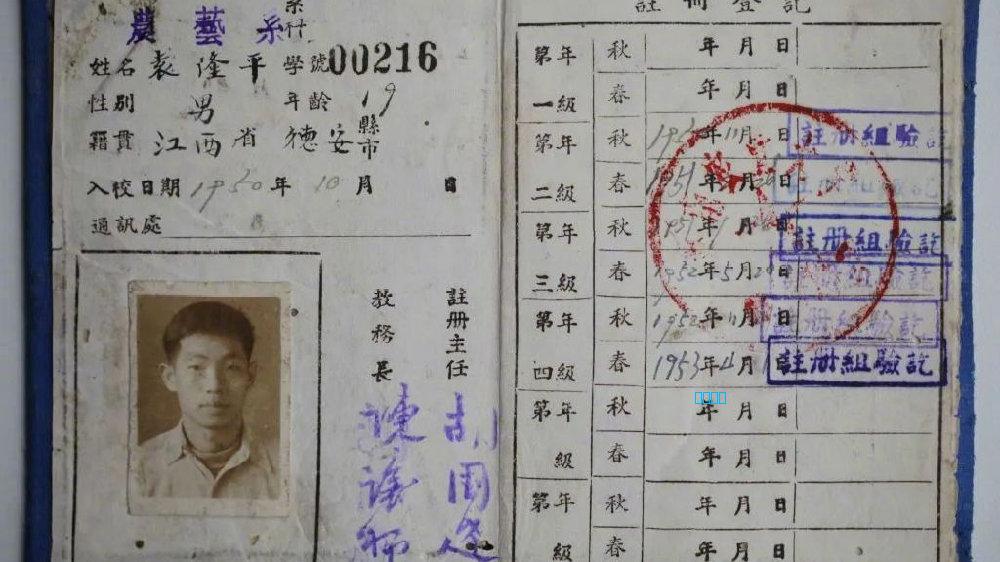 農藝系
系科
姓名 袁隆平 學號00216
性別 男 年齡 19
籍貫 江西省德安縣市
入校日期 1950年10月 日
通訊處
教務長
註冊主任
註冊登記
第一年級 秋 年 月 日
春 年 月 日
第二年級 秋 年11月 日 註冊組驗訖
春 1951年 月 日 註冊組驗訖
第三年級 秋 1951年 月 日 註冊組驗訖
春 1952年5月 日 註冊組驗訖
第四年級 秋 1952年11月 日 註冊組驗訖
春 1953年4月 日 註冊組驗訖
第 年級 秋 年 月 日
春 年 月 日
第 年級 秋 年 月 日
春 年 月 日